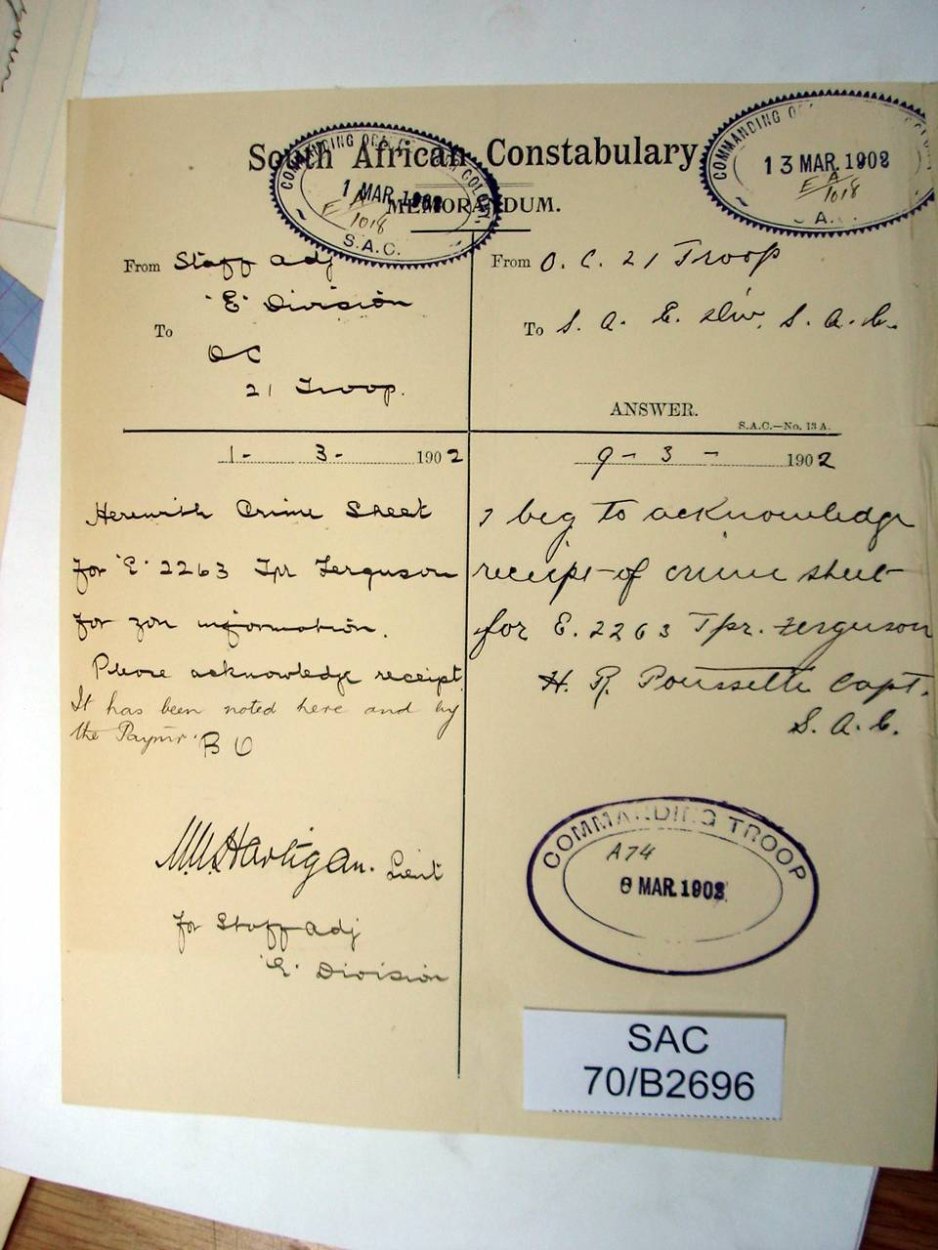 South African Constabulary
MEMORANDUM.
COMMANDING
1 MAR 1902
E A/1018
S.A.C.
COMMANDING
13 MAR. 1902
E A/1018
A.
From Staff Adj
"E" Division
To
OC
21 Troop.
From O. C. 21 Troop
To S. A. E. Div. S. A. C.
ANSWER.
S.A.C.—No. 13A.
1 - 3 - 1902
Herewith Crime Sheet
for "E" 2263 Tpr Ferguson
for yr information.
Please acknowledge receipt.
It has been noted here and by
the Paymr.
M.M. Hartigan. Lieut
for Staff Adj
"E" Division
9 - 3 - 1902
I beg to acknowledge
receipt of crime sheet
for E. 2263 Tpr. Ferguson
H. R. Poussette Capt.
S. A. C.
COMMANDING TROOP
A74
8 MAR. 1902
SAC
70/B2696